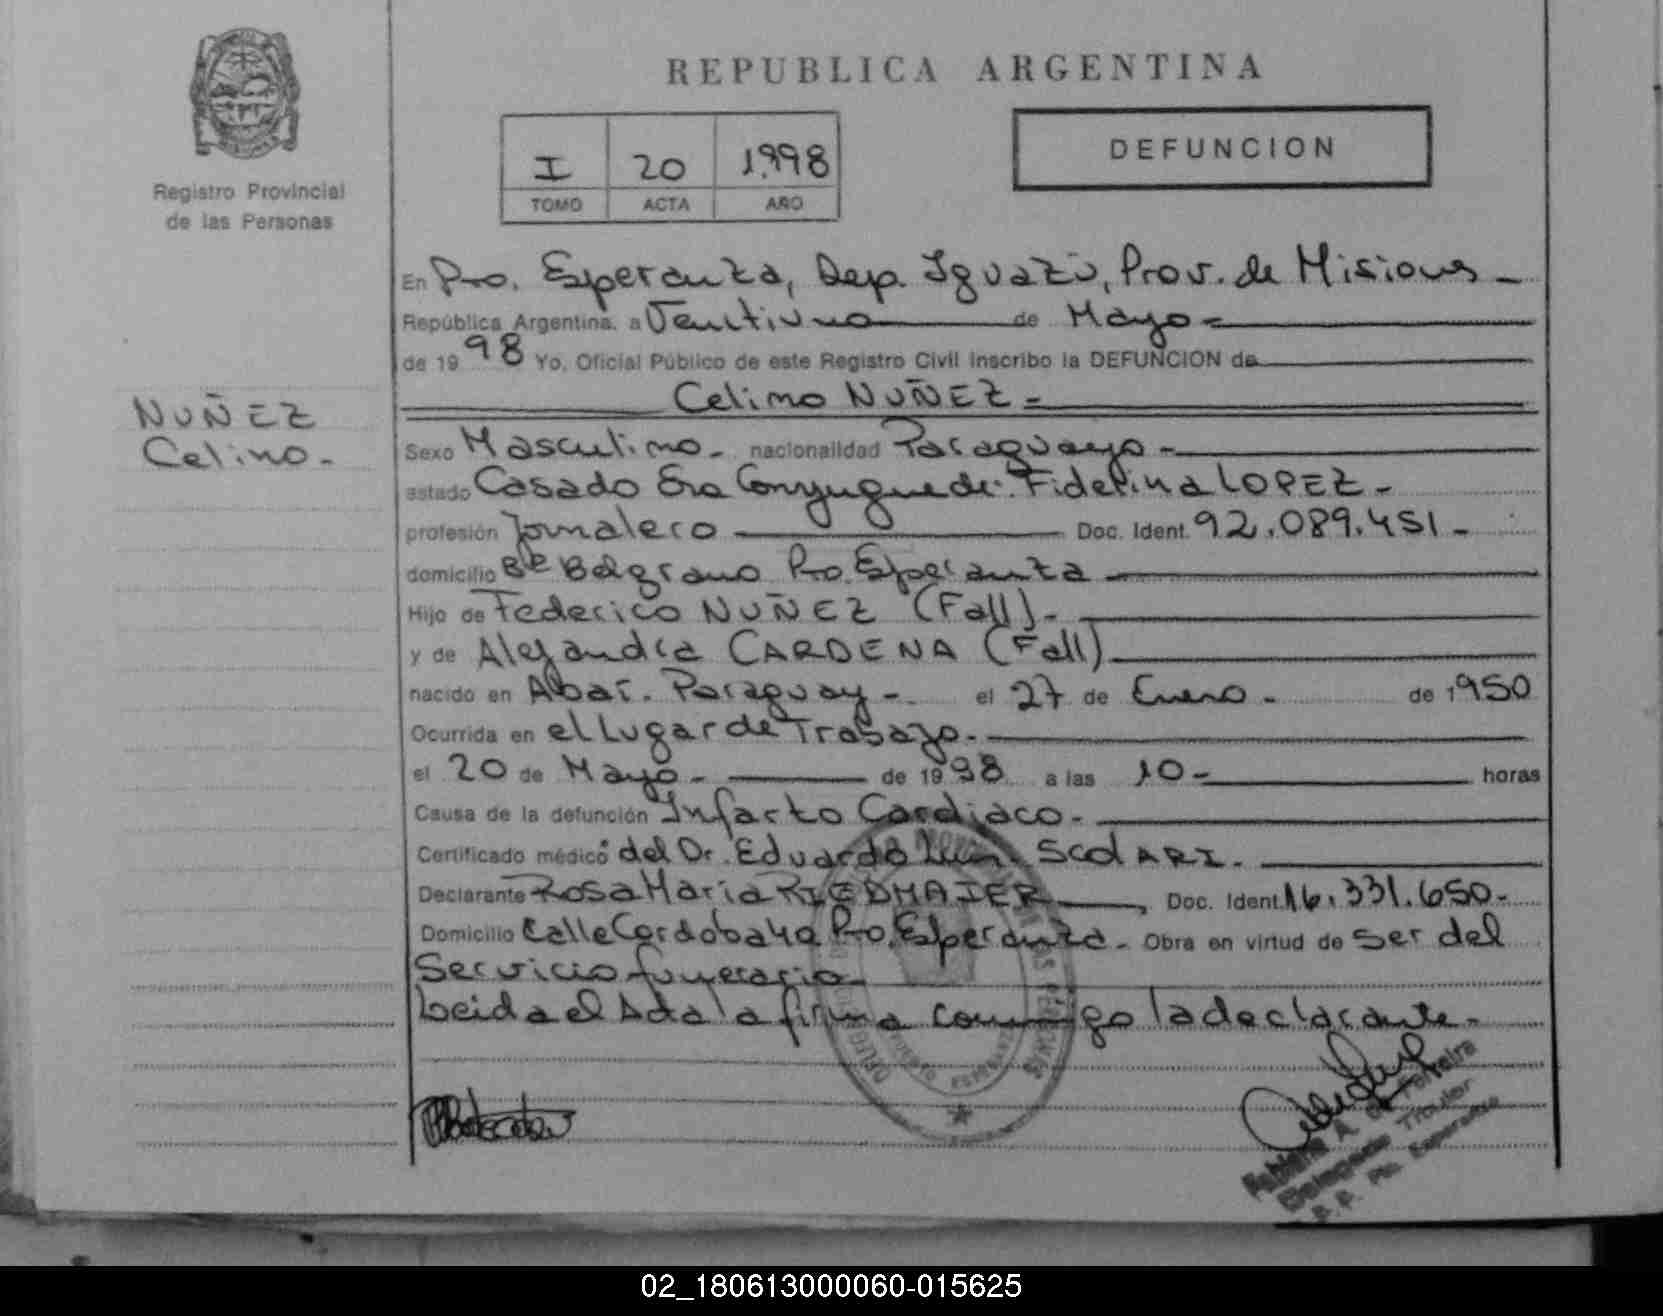 REPUBLICA ARGENTINA
Registro Provincial
de las Personas
I 20 1.998
TOMO ACTA AÑO
DEFUNCION
En Pto. Esperanza, Dep. Iguazú, Prov. de Misiones -
República Argentina, a Veintiuno de Mayo =
de 19 98 Yo, Oficial Público de este Registro Civil inscribo la DEFUNCION de
Celino NUÑEZ =
NUÑEZ
Celino. -
Sexo Masculino - nacionalidad Paraguayo -
estado Casado Era Conyugue de: Fidelina LOPEZ -
profesión Jornalero Doc. Ident. 92.089.451 -
domicilio Bº Belgrano Pto. Esperanza
Hijo de Federico NUÑEZ (Fall). -
y de Alejandra CARDENA (Fall)
nacido en Abaí. Paraguay - el 27 de Enero - de 1950
Ocurrida en el Lugar de Trabajo. -
el 20 de Mayo - de 1998 a las 10 - horas
Causa de la defunción Infarto Cardiaco. -
Certificado médico del Dr. Eduardo Luis SCOLARI. -
Declarante Rosa Maria RIEDMAIER, Doc. Ident. 16.331.650 -
Domicilio Calle Cordoba Pto. Esperanza - Obra en virtud de ser del
Servicio funerario
Leida el Acta la firma conmigo la declarante. -
Fabiana A. de Ferreira
Delegada Titular
Pto. Esperanza
02_180613000060-015625